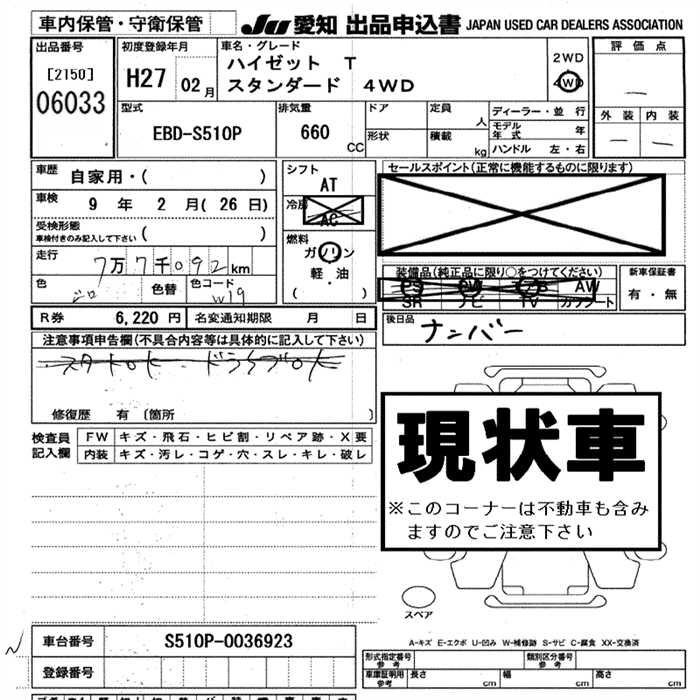 車内保管・守衛保管
JU 愛知 出品申込書 JAPAN USED CAR DEALERS ASSOCIATION
出品番号
[2150]
06033
初度登録年月
H27 02月
車名・グレード
ハイゼット T
スタンダード 4WD
2WD
4WD
評価点
外装 内装
型式
EBD-S510P
排気量
660 CC
ドア
形状
定員 人
積載 kg
ディーラー・並行
モデル年式 年
ハンドル 左・右
車歴 自家用・( )
車検 9 年 2 月( 26 日)
受検形態
車検付きのみ記入して下さい ( )
走行 7万7千092km
色 シロ 色替 色コード W19
シフト
AT
冷房
AC
燃料
ガソリン
軽・油
( )
セールスポイント(正常に機能するものに限ります)
装備品(純正品に限り○をつけてください)
PS PW エアB AW
SR ナビ TV カワシート
新車保証書
有・無
R券 6,220 円 名変通知期限 月 日
後日品
ナンバー
注意事項申告欄(不具合内容等は具体的に記入して下さい)
修復歴 有 〔箇所 〕
検査員記入欄
FW キズ・飛石・ヒビ割・リペア跡・X要
内装 キズ・汚レ・コゲ・穴・スレ・キレ・破レ
現状車
※このコーナーは不動車も含み
ますのでご注意下さい
スペア
A-キズ E-エクボ U-凹み W-補修跡 S-サビ C-腐食 XX-交換済
車台番号 S510P-0036923
登録番号
形式指定番号 参考
類別区分番号 参考
車庫証明用 参考 長さ cm 幅 cm 高さ cm